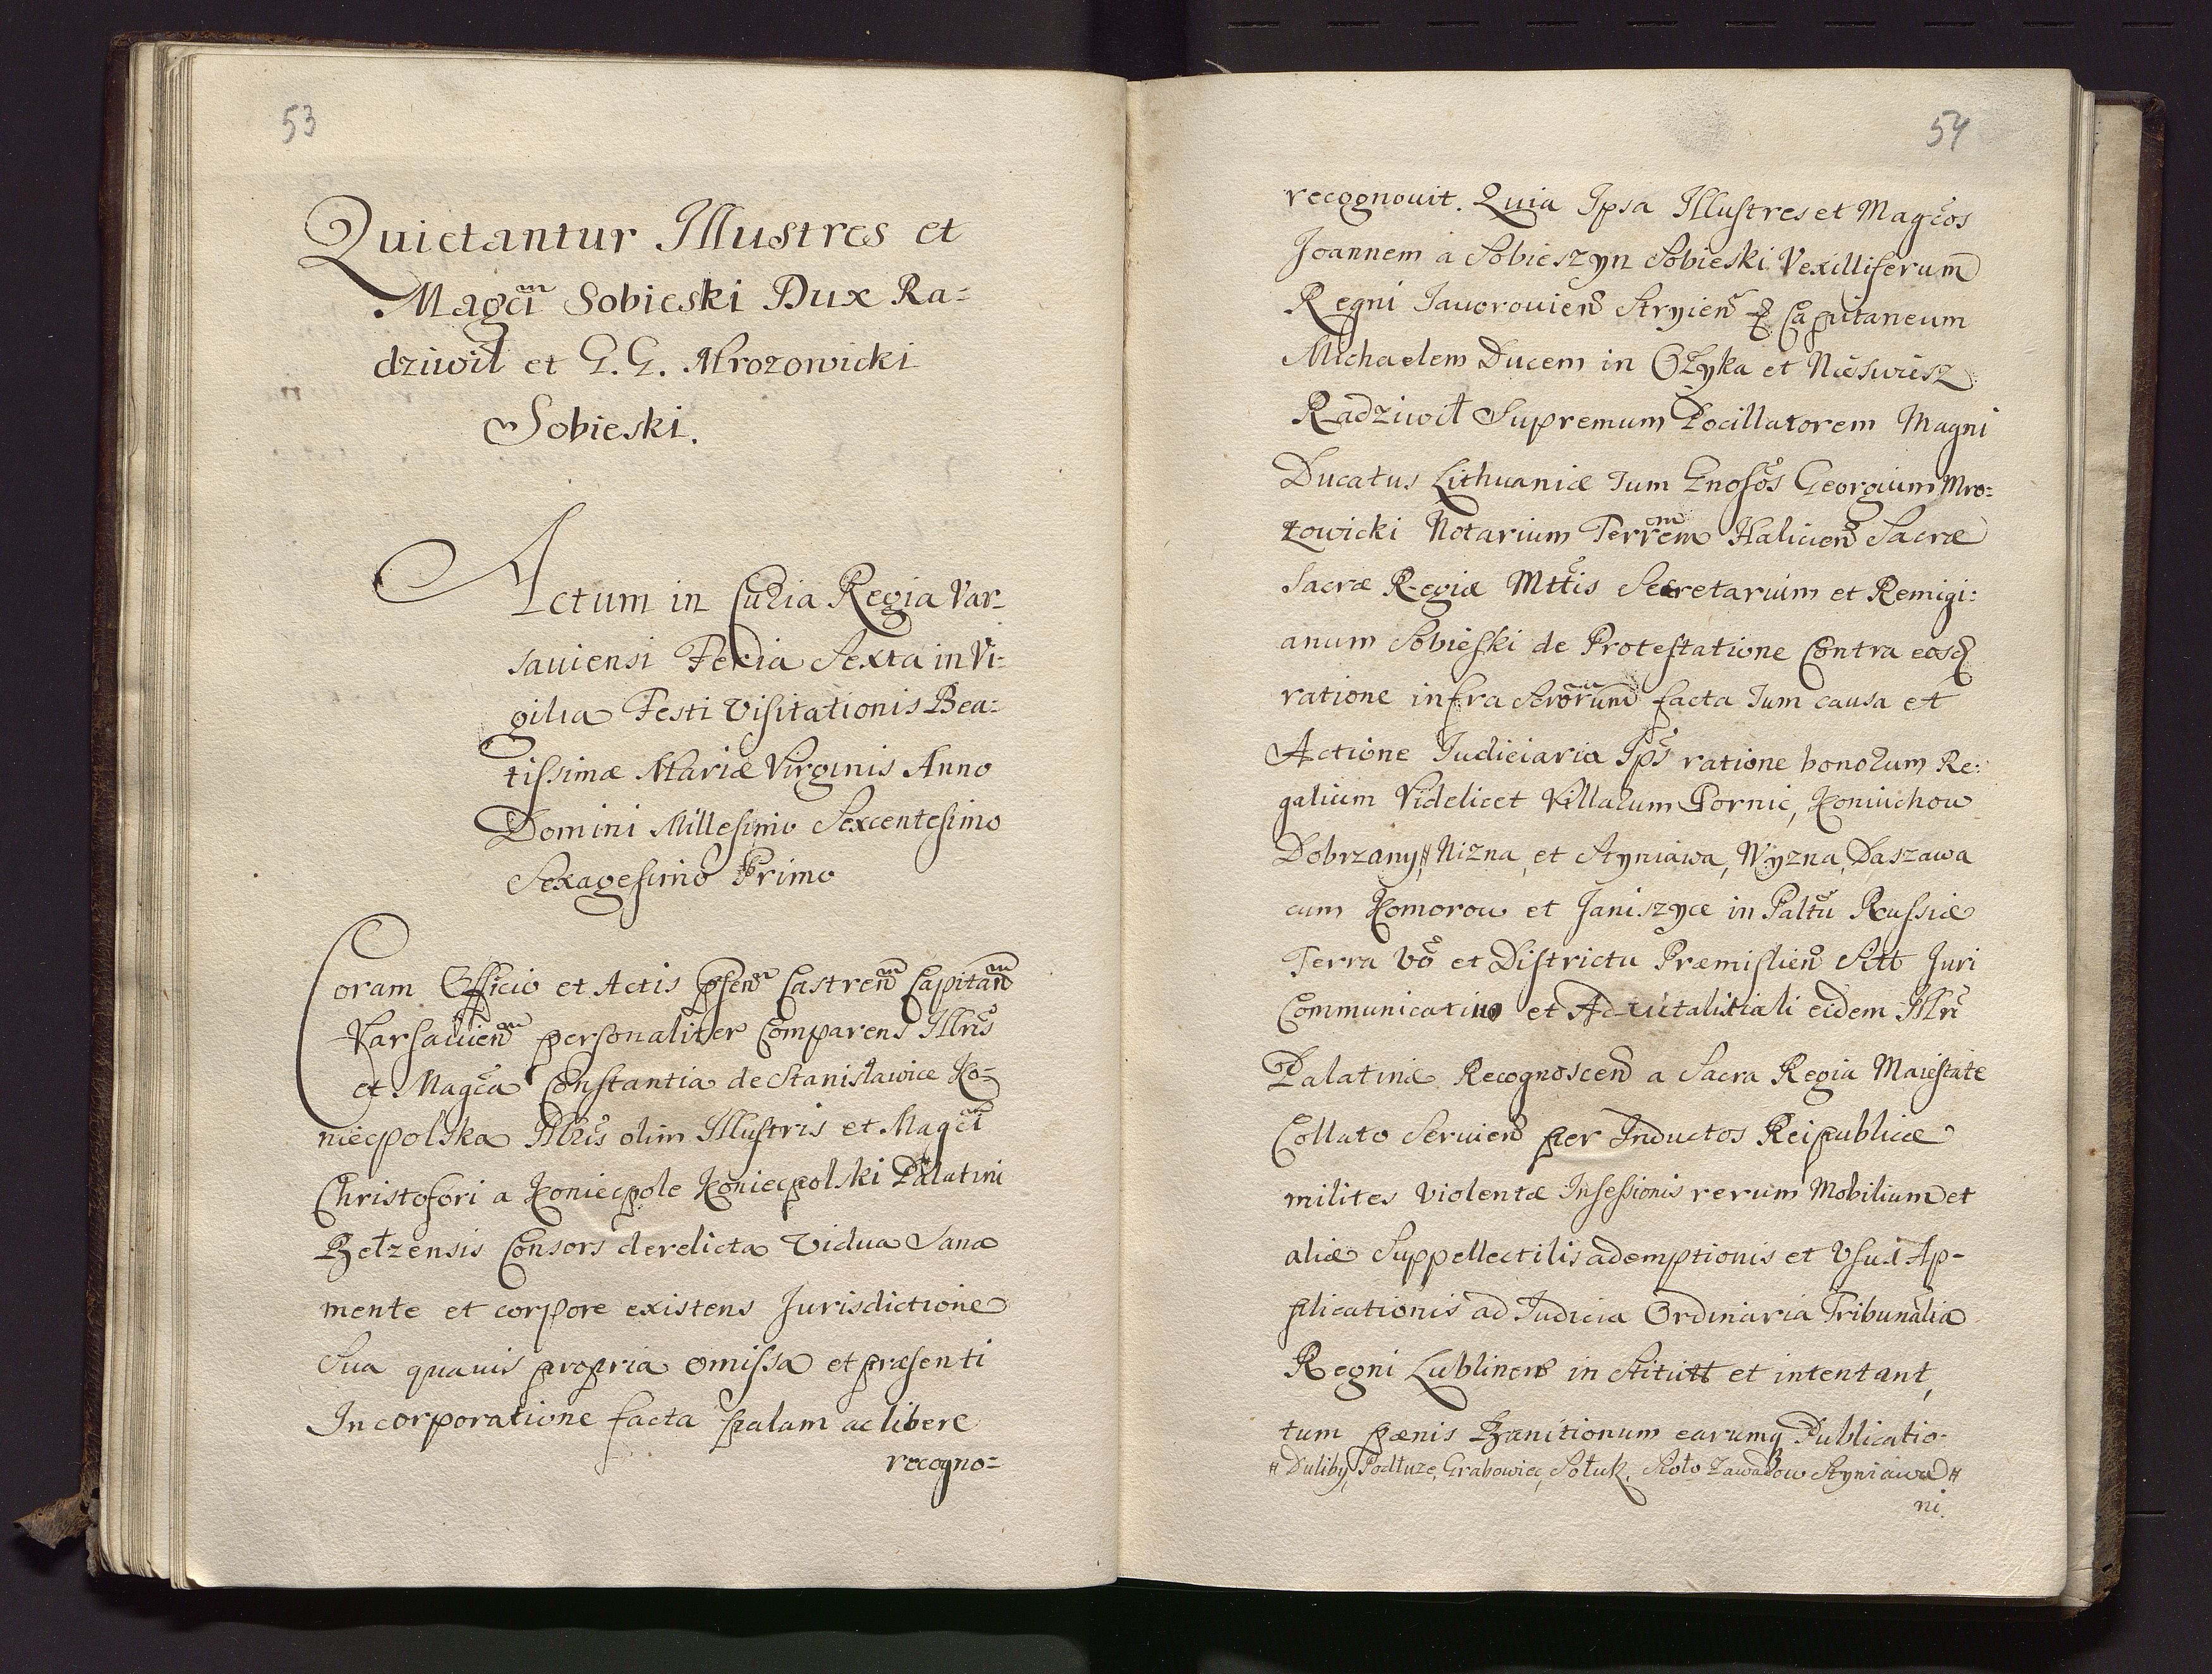 53
Quietantur Illustres et
Magci Sobieski Dux Ra=
dziwił et G. G. Mrozowicki
Sobieski.
Actum in Curia Regia Var-
saviensi Feria Sexta in Vi=
gilia Festi Visitationis Bea=
tissimæ Mariæ Virginis Anno
Domini Millesimo Sexcentesimo
Sexagesimo Primo
Coram Officio et Actis psen Castren Capitan
Varsavien personaliter Comparens Illris
et Magca Constantia de Stanisławice Ko=
niecpolska Illris olim Illustris et Magci
Christofori a Koniecpole Koniecpolski Palatini
Bełzensis Consors derelicta Vidua Sana
mente et corpore existens Jurisdictione
Sua quavis propria omissa et præsenti
Incorporatione facta palam ac libere
recogno=
54
recognouit. Quia Ipsa Illustres et Magcos
Joannem a Sobieszyn Sobieski Vexilliferum
Regni Iavorovien Stryien & Capitaneum
Michaelem Ducem in Ołyka et Nieswiesz
Radziwił Supremum Pocillatorem Magni
Ducatus Lithuaniæ Tum Gnosos Georgium Mro=
zowicki Notarium Terrem Halicien Sacræ
Sacræ Regiæ Mttis Secretarium et Remigi:
anum Sobieski de Protestatione Contra eosq
ratione infra Scrorum facta Tum causa et
Actione Iudiciaria Ips ratione bonorum Re:
galium Videlicet Villarum Pornic, Koniuchow
Dobrzany,# Nizna, et Styniawa, Wyzna, Daszawa
cum Komorow et Janiszyce in Paltu Russiæ
Terra vo et Districtu Præmislien Sitt Juri
Communicativo et Advitalitiali eidem Illri
Palatinæ Recognoscen a Sacra Regia Maiestate
Collato Servien per Inductos Reipublicæ
milites violentæ Insessionis rerum Mobilium et
aliæ Suppellectilis ademptionis et Usui Ap-
plicationis ad Iudicia Ordinaria Tribunalia
Regni Lublinen in Stitutt et intentant,
tum pænis Banitionum earumq Publicatio-
# Duliby, Podłuze, Grabowiec, Sołuk, Stoło Zawadow Styniawa #
ni